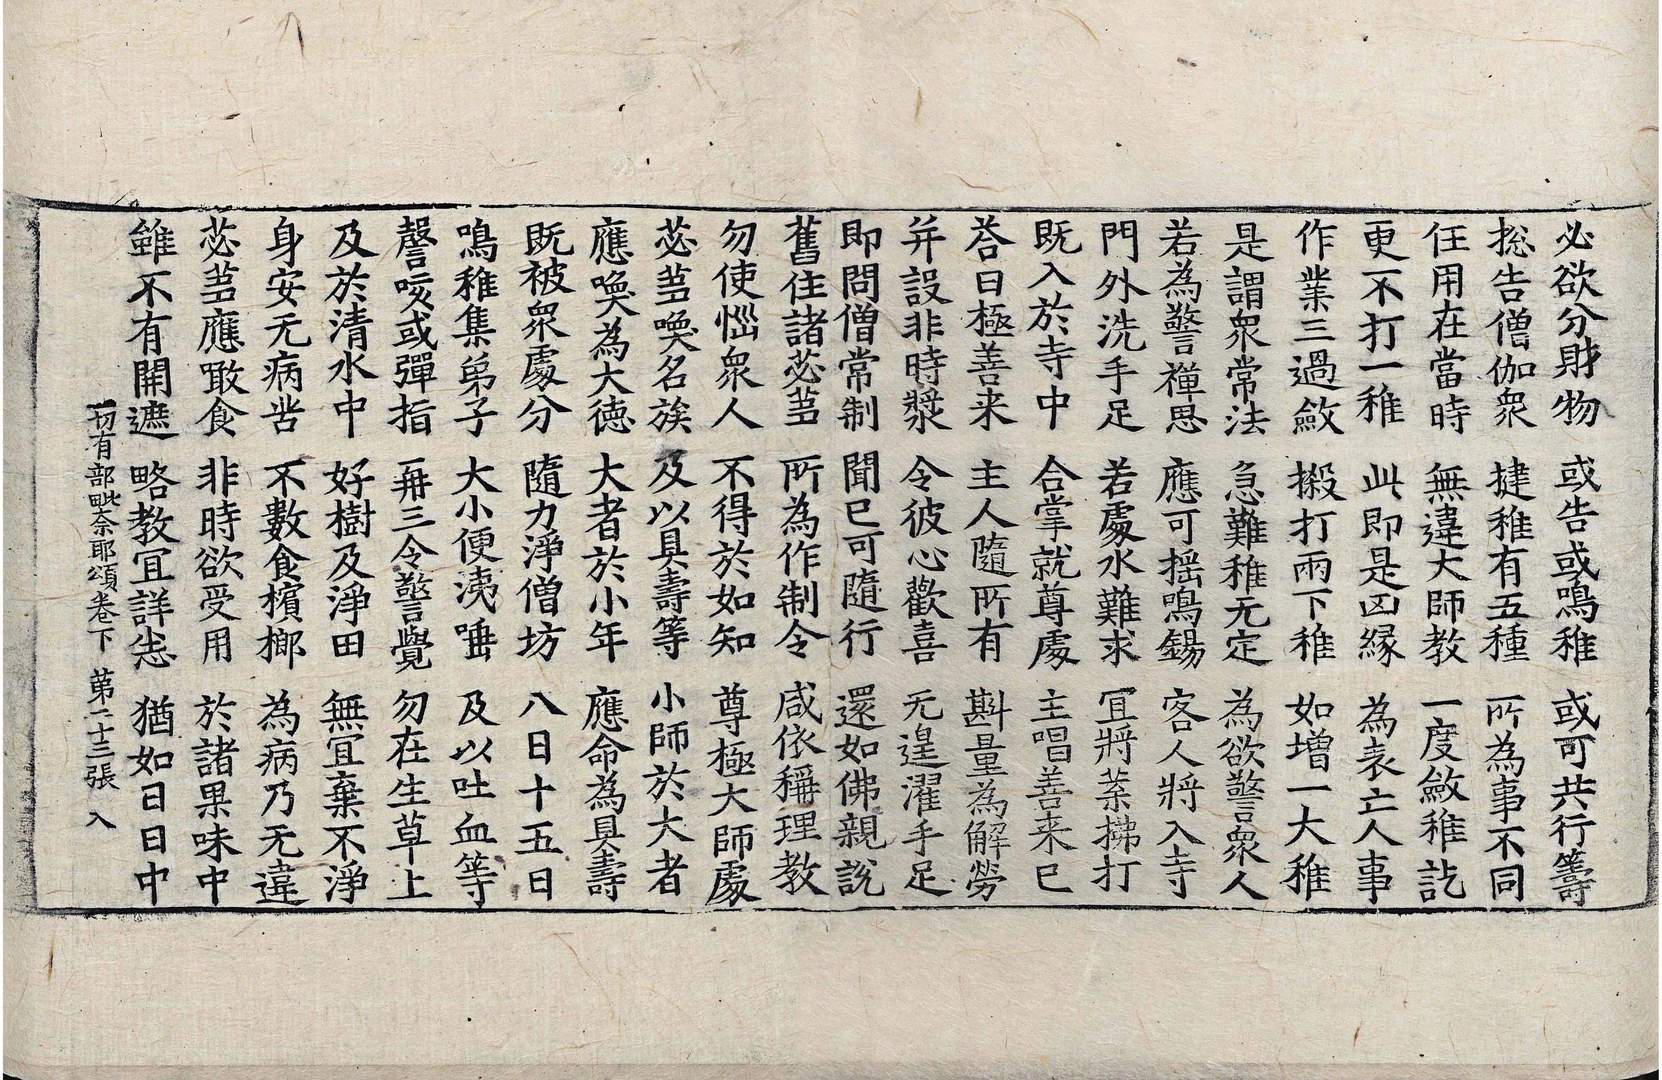 必欲分財物 或告或鳴稚 或可共行籌
揔告僧伽衆 揵稚有五種 所為事不同
任用在當時 無違大師教 一度斂稚訖
更不打一稚 此即是凶緣 為表亡人事
作業三過斂 搬打兩下稚 如增一大稚
是謂衆常法 急難稚无定 為欲警衆人
若為警禪思 應可揺鳴錫 客人將入寺
門外洗手足 若處水難求 宜將葉拂打
既入於寺中 合掌就尊處 主唱善来已
荅曰極善来 主人隨所有 斟量為解勞
并設非時漿 令彼心歡喜 无遑濯手足
即問僧常制 聞已可隨行 還如佛親說
舊住諸苾𦵔 所為作制令 咸依稱理教
勿使惱衆人 不得於如知 尊極大師處
苾𦵔喚名族 及以具壽等 小師於大者
應喚為大德 大者於小年 應命為具壽
既被衆處分 隨力淨僧坊 八日十五日
鳴稚集弟子 大小便洟唾 及以吐血等
謦欬或彈指 再三令警覺 勿在生草上
及於清水中 好樹及淨田 無宜棄不淨
身安无病苦 不數食檳榔 為病乃无違
苾𦵔應噉食 非時欲受用 於諸果味中
雖不有開遮 略教宜詳悉 猶如日日中
一切有部毗奈耶頌卷下 第二十三張 入